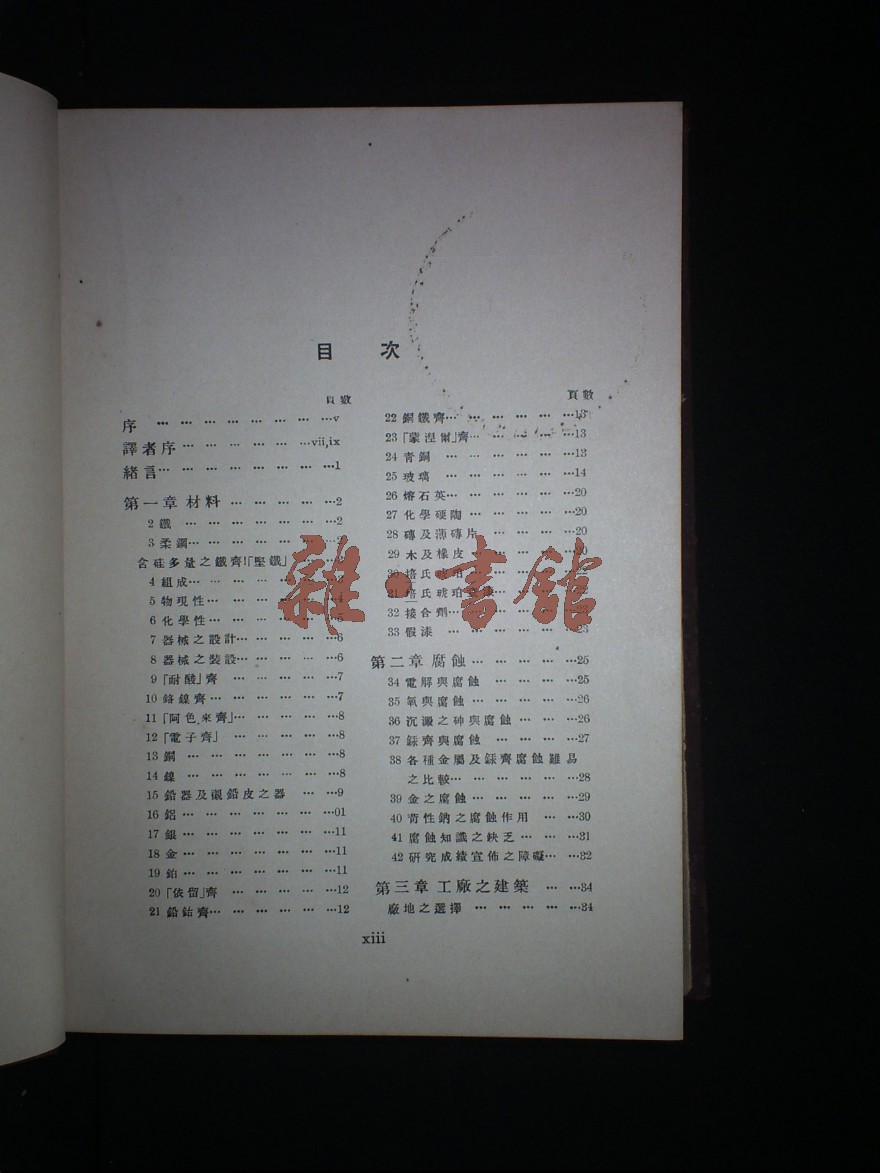 目 次
頁數
序 … … … … … … … …v
譯者序 … … … … … …vii,ix
緒言… … … … … … …1
第一章 材料 … … … … …2
2 鐵 … … … … … … …2
3 柔鋼… … … … … …
含硅多量之鐵齊「堅鐵」
4 組成… … … … …
5 物現性… … … … … …4
6 化學性… … … … …
7 器械之設計… … … … …6
8 器械之裝設… … … … …6
9「耐酸」齊 … … … … …7
10 鉻鎳齊… … … … … …7
11「阿色來齊」… … … … …8
12「電子齊」 … … … … …8
13 銅 … … … … … … …8
14 鎳 … … … … … … …8
15 鉛器及襯鉛皮之器 … …9
16 鋁… … … … … … …01
17 銀… … … … … … …11
18 金… … … … … … …11
19 鉑… … … … … … …11
20「依留」齊 … … … … …12
21 鉛鈶齊… … … … … …12
頁數
22 銅鐵齊… … … … … …13
23「蒙涅爾」齊… … … … …13
24 青銅 … … … … … …13
25 玻璃 … … … … … …14
26 熔石英… … … … … …20
27 化學硬陶 … … … … …20
28 磚及薄磚片 … … … …20
29 木及橡皮 … … … …
30 培氏琥珀
21 培氏琥珀
32 接合劑… … …
33 假漆 … … … … … …23
第二章 腐蝕 … … … … …25
34 電解與腐蝕 … … … …25
35 氧與腐蝕… … … … …26
36 沉澱之砷與腐蝕 … … …26
37 鋉齊與腐蝕 … … … …27
38 各種金屬及鋉齊腐蝕難易
之比較… … … … … …28
39 金之腐蝕… … … … …29
40 苛性鈉之腐蝕作用 … …30
41 腐蝕知識之缺乏 … … …31
42 研究成績宣佈之障礙… …32
第三章 工廠之建築 … …34
廠地之選擇 … … … … …34
xiii
雜·書館